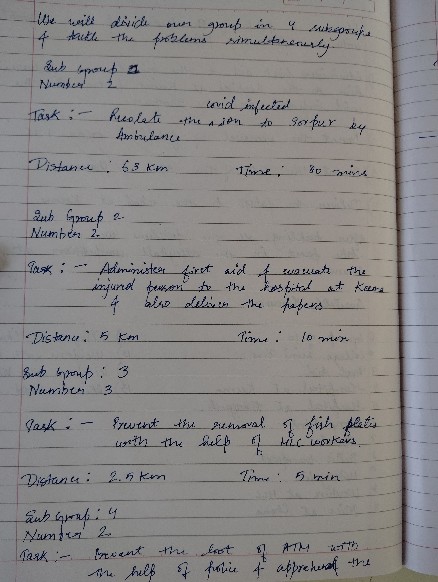 We will divide our group in 4 subgroups
& tackle the problems simultaneously.
Sub Group 1
Number 2
covid infected
Task :- the son to by
Ambulance
Distance : 53 km Time : 80 mins
Sub Group 2
Number 2
Task :- Administer first aid & evacuate the
injured person to the hospital at
& also deliver the papers
Distance : 5 km Time : 10 min
Sub Group : 3
Number 3
Task :- Prevent the removal of fish plates
with the help of workers.
Distance : 2.5 km Time : 5 min
Sub Group : 4
Number 2
Task :- Prevent the loot of ATM with
the help of police & apprehend the